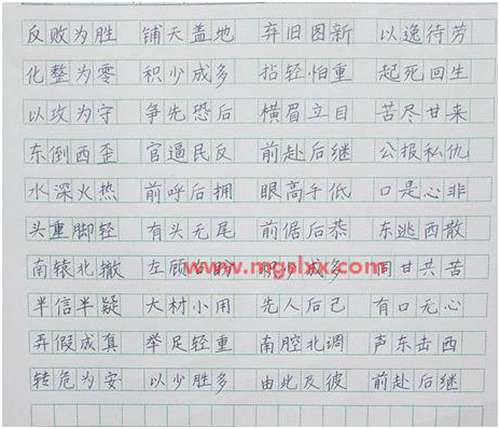 反败为胜 铺天盖地 弃旧图新 以逸待劳
化整为零 积少成多 拈轻怕重 起死回生
以攻为守 争先恐后 横眉立目 苦尽甘来
东倒西歪 官逼民反 前赴后继 公报私仇
水深火热 前呼后拥 眼高手低 口是心非
头重脚轻 有头无尾 前倨后恭 东逃西散
南辕北辙 左顾右盼 积少成多 同甘共苦
www.mgolxx.com
半信半疑 大材小用 先人后己 有口无心
弄假成真 举足轻重 南腔北调 声东击西
转危为安 以少胜多 由此及彼 前赴后继